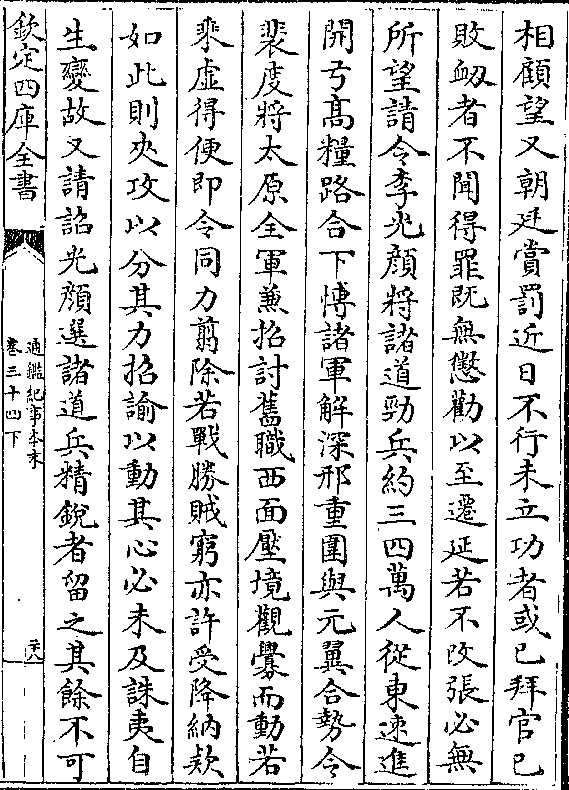 相顧望又朝廷賞罰近日不行未立功者或已拜官已
敗衂者不聞得罪既無懲勸以至遷延若不改張必無
所望請令李光顔將諸道勁兵約三四萬人從東速進
開弓高糧路合下愽諸軍解深邢重圍與元翼合勢令
裴度將太原全軍兼招討舊職西面壓境觀釁而動若
乘虛得便即令同力翦除若戰勝賊窮亦許受降納欵
如此則夾攻以分其力招諭以動其心必未及誅夷自
生變故又請詔光顔選諸道兵精銳者留之其餘不可
欽定四庫全書
通鑑紀事本末
卷三十四下